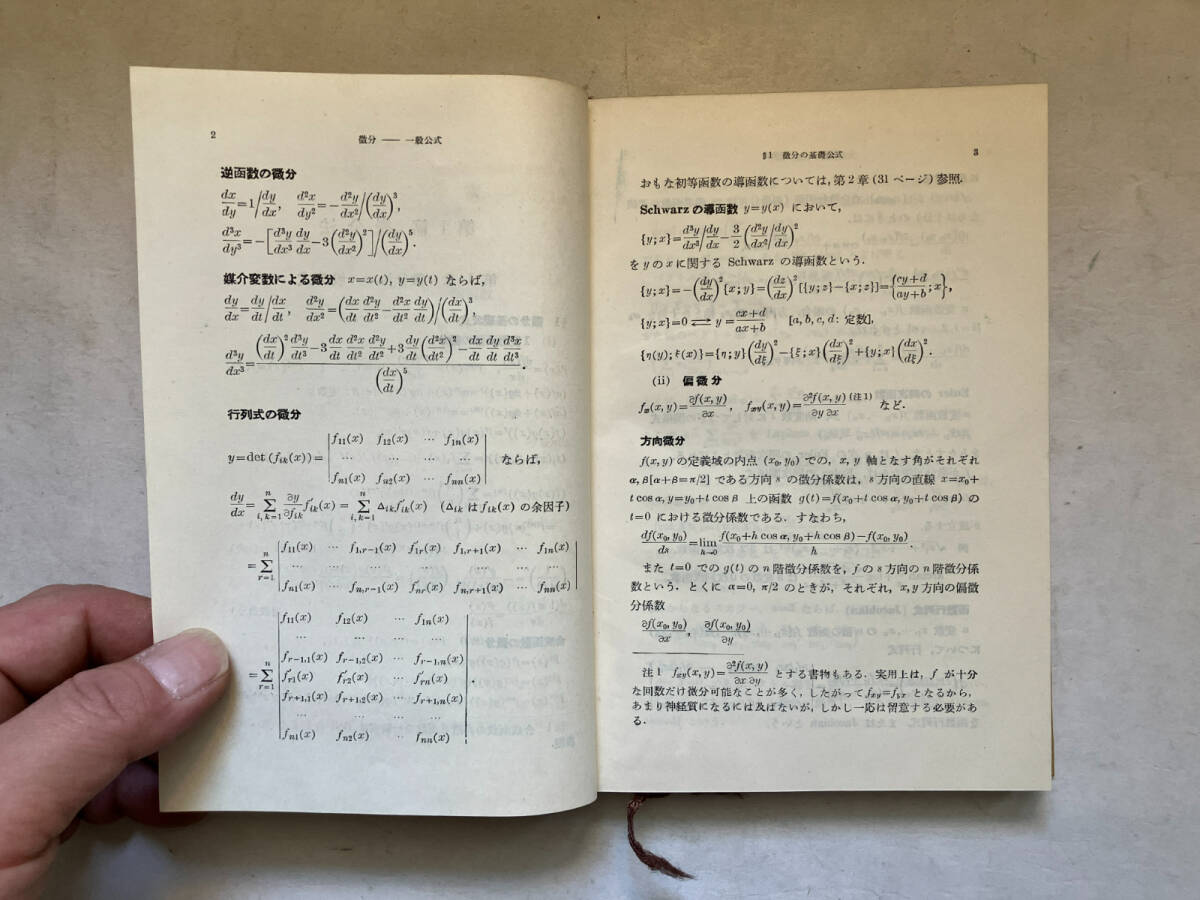 2
微分 —— 一般公式
逆函数の微分
dx/dy=1/(dy/dx), d²x/dy²=−(d²y/dx²)/(dy/dx)³,
d³x/dy³=−[d³y/dx³ dy/dx−3(d²y/dx²)²]/(dy/dx)⁵.
媒介変数による微分 x=x(t), y=y(t) ならば,
dy/dx=(dy/dt)/(dx/dt), d²y/dx²=(dx/dt d²y/dt²−d²x/dt² dy/dt)/(dx/dt)³,
d³y/dx³=((dx/dt)² d³y/dt³−3 dx/dt d²x/dt² d²y/dt²+3 dy/dt (d²x/dt²)²−dx/dt dy/dt d³x/dt³)/(dx/dt)⁵.
行列式の微分
f₁₁(x) f₁₂(x) … f₁ₙ(x)
y=det(fᵢₖ(x))= … … … … ならば,
fₙ₁(x) fₙ₂(x) … fₙₙ(x)
dy/dx=Σ(i,k=1→n) ∂y/∂fᵢₖ f′ᵢₖ(x)=Σ(i,k=1→n) Δᵢₖf′ᵢₖ(x) (Δᵢₖ は fᵢₖ(x) の余因子)
f₁₁(x) … f₁,ᵣ₋₁(x) f′₁ᵣ(x) f₁,ᵣ₊₁(x) … f₁ₙ(x)
=Σ(r=1→n) … … … … … … …
fₙ₁(x) … fₙ,ᵣ₋₁(x) f′ₙᵣ(x) fₙ,ᵣ₊₁(x) … fₙₙ(x)
f₁₁(x) f₁₂(x) … f₁ₙ(x)
… … … …
fᵣ₋₁,₁(x) fᵣ₋₁,₂(x) … fᵣ₋₁,ₙ(x)
=Σ(r=1→n) f′ᵣ₁(x) f′ᵣ₂(x) … f′ᵣₙ(x) .
fᵣ₊₁,₁(x) fᵣ₊₁,₂(x) … fᵣ₊₁,ₙ(x)
… … … …
fₙ₁(x) fₙ₂(x) … fₙₙ(x)
§1 微分の基礎公式
3
おもな初等函数の導函数については, 第2章(31ページ)参照.
Schwarzの導函数 y=y(x) において,
{y;x}=(d³y/dx³)/(dy/dx)−3/2((d²y/dx²)/(dy/dx))²
を y の x に関する Schwarz の導函数という.
{y;x}=−(dy/dx)²{x;y}=(dz/dx)²[{y;z}−{x;z}]={(cy+d)/(ay+b);x},
{y;x}=0⇄y=(cx+d)/(ax+b) [a,b,c,d: 定数],
{η(y);ξ(x)}={η;y}(dy/dξ)²−{ξ;x}(dx/dξ)²+{y;x}(dx/dξ)².
(ii) 偏微分
fₓ(x,y)=∂f(x,y)/∂x, fₓᵧ(x,y)=∂²f(x,y)/∂y∂x (注1) など.
方向微分
f(x,y)の定義域の内点 (x₀,y₀) での, x, y 軸となす角がそれぞれ
α,β[α+β=π/2] である方向 s の微分係数は, s 方向の直線 x=x₀+
t cos α, y=y₀+t cos β 上の函数 g(t)=f(x₀+t cos α, y₀+t cos β) の
t=0 における微分係数である. すなわち,
df(x₀,y₀)/ds=lim(h→0) (f(x₀+h cos α, y₀+h cos β)−f(x₀,y₀))/h.
また t=0 での g(t) の n 階微分係数を, f の s 方向の n 階微分係
数という. とくに α=0, π/2 のときが, それぞれ, x, y 方向の偏微
分係数
∂f(x₀,y₀)/∂x, ∂f(x₀,y₀)/∂y
注1 fₓᵧ(x,y)=∂²f(x,y)/∂x∂y とする書物もある. 実用上は, f が十分
な回数だけ微分可能なことが多く, したがって fₓᵧ=fᵧₓ となるから,
あまり神経質になるには及ばないが, しかし一応は留意する必要があ
る.